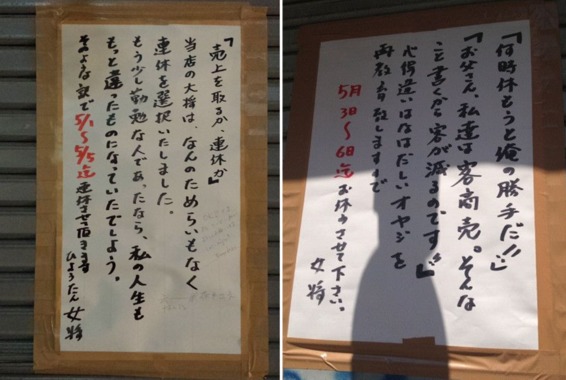 「売上を取るか、連休か」
当店の大将は、なんのためらいもなく
連休を選択いたしました。
もう少し勤勉な人であったなら、私の人生も
もっと違ったものになっていたでしょう。
そのような訳で5/1〜5/5迄連休させて頂きます
ひょうたん 女将
「何時休もうと俺の勝手だ!!」
『お父さん、私達は客商売。そんな
こと書くから客が減るのです!!』
心得違いはなはだしいオヤジを
再教育致しますので
5月3日〜6日迄お休みさせて下さい。
女将